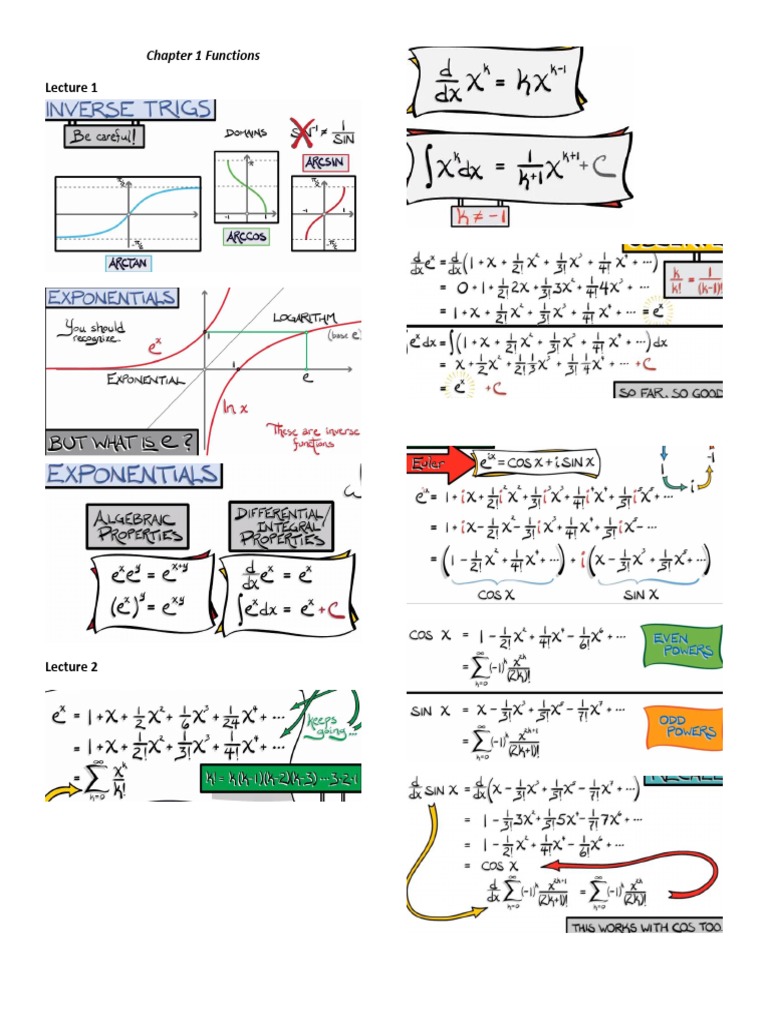 Chapter 1 Functions
Lecture 1
INVERSE TRIGS
Be careful!
DOMAINS
SIN⁻¹ ≠ 1/SIN
ARCSIN
π/2
-π/2
ARCTAN
π
-1
1
ARCCOS
π/2
-1
1
-π/2
EXPONENTIALS
You should
recognize...
eˣ
LOGARITHM
(base e)
1
1
e
EXPONENTIAL
ln x
These are inverse
functions
BUT WHAT IS e?
EXPONENTIALS
ALGEBRAIC
PROPERTIES
DIFFERENTIAL/
INTEGRAL
PROPERTIES
eˣeʸ = eˣ⁺ʸ
(eˣ)ʸ = eˣʸ
d/dx eˣ = eˣ
∫eˣdx = eˣ + C
Lecture 2
eˣ = 1 + x + 1/2 x² + 1/6 x³ + 1/24 x⁴ + ...
= 1 + x + 1/2! x² + 1/3! x³ + 1/4! x⁴ + ...
= ∞ Σ k=0 xᵏ/k!
keeps
going...
k! = k(k-1)(k-2)(k-3)...3·2·1
d/dx xᵏ = kxᵏ⁻¹
) ∫xᵏdx = 1/k+1 xᵏ⁺¹ + C
k ≠ -1
d/dx eˣ = d/dx(1 + x + 1/2! x² + 1/3! x³ + 1/4! x⁴ + ...)
= 0 + 1 + 1/2! 2x + 1/3! 3x² + 1/4! 4x³ + ...
= 1 + x + 1/2! x² + 1/3! x³ + 1/4! x⁴ + ... = eˣ
k/k! = 1/(k-1)!
eˣdx = ∫(1 + x + 1/2! x² + 1/3! x³ + 1/4! x⁴ + ...)dx
= x + 1/2 x² + 1/2! 1/3 x³ + 1/3! 1/4 x⁴ + ... + C
= eˣ + C
SO FAR, SO GOOD
Euler
eⁱˣ = COS x + i SIN x
i
i
-1
eⁱˣ = 1 + ix + 1/2! i²x² + 1/3! i³x³ + 1/4! i⁴x⁴ + 1/5! i⁵x⁵ + ...
= 1 + ix - 1/2! x² - 1/3! ix³ + 1/4! x⁴ + 1/5! ix⁵ - ...
= (1 - 1/2! x² + 1/4! x⁴ - ...) + i(x - 1/3! x³ + 1/5! x⁵ - ...)
COS x
SIN x
COS x = 1 - 1/2! x² + 1/4! x⁴ - 1/6! x⁶ + ...
= ∞ Σ k=0 (-1)ᵏ x²ᵏ/(2k)!
EVEN
POWERS
SIN x = x - 1/3! x³ + 1/5! x⁵ - 1/7! x⁷ + ...
= ∞ Σ k=0 (-1)ᵏ x²ᵏ⁺¹/(2k+1)!
ODD
POWERS
d/dx SIN x = d/dx(x - 1/3! x³ + 1/5! x⁵ - 1/7! x⁷ + ...)
= 1 - 1/3! 3x² + 1/5! 5x⁴ - 1/7! 7x⁶ + ...
= 1 - 1/2! x² + 1/4! x⁴ - 1/6! x⁶ + ...
= COS x
d/dx ∞ Σ k=0 (-1)ᵏ x²ᵏ⁺¹/(2k+1)! = ∞ Σ k=0 (-1)ᵏ x²ᵏ/(2k)!
THIS WORKS WITH COS TOO.